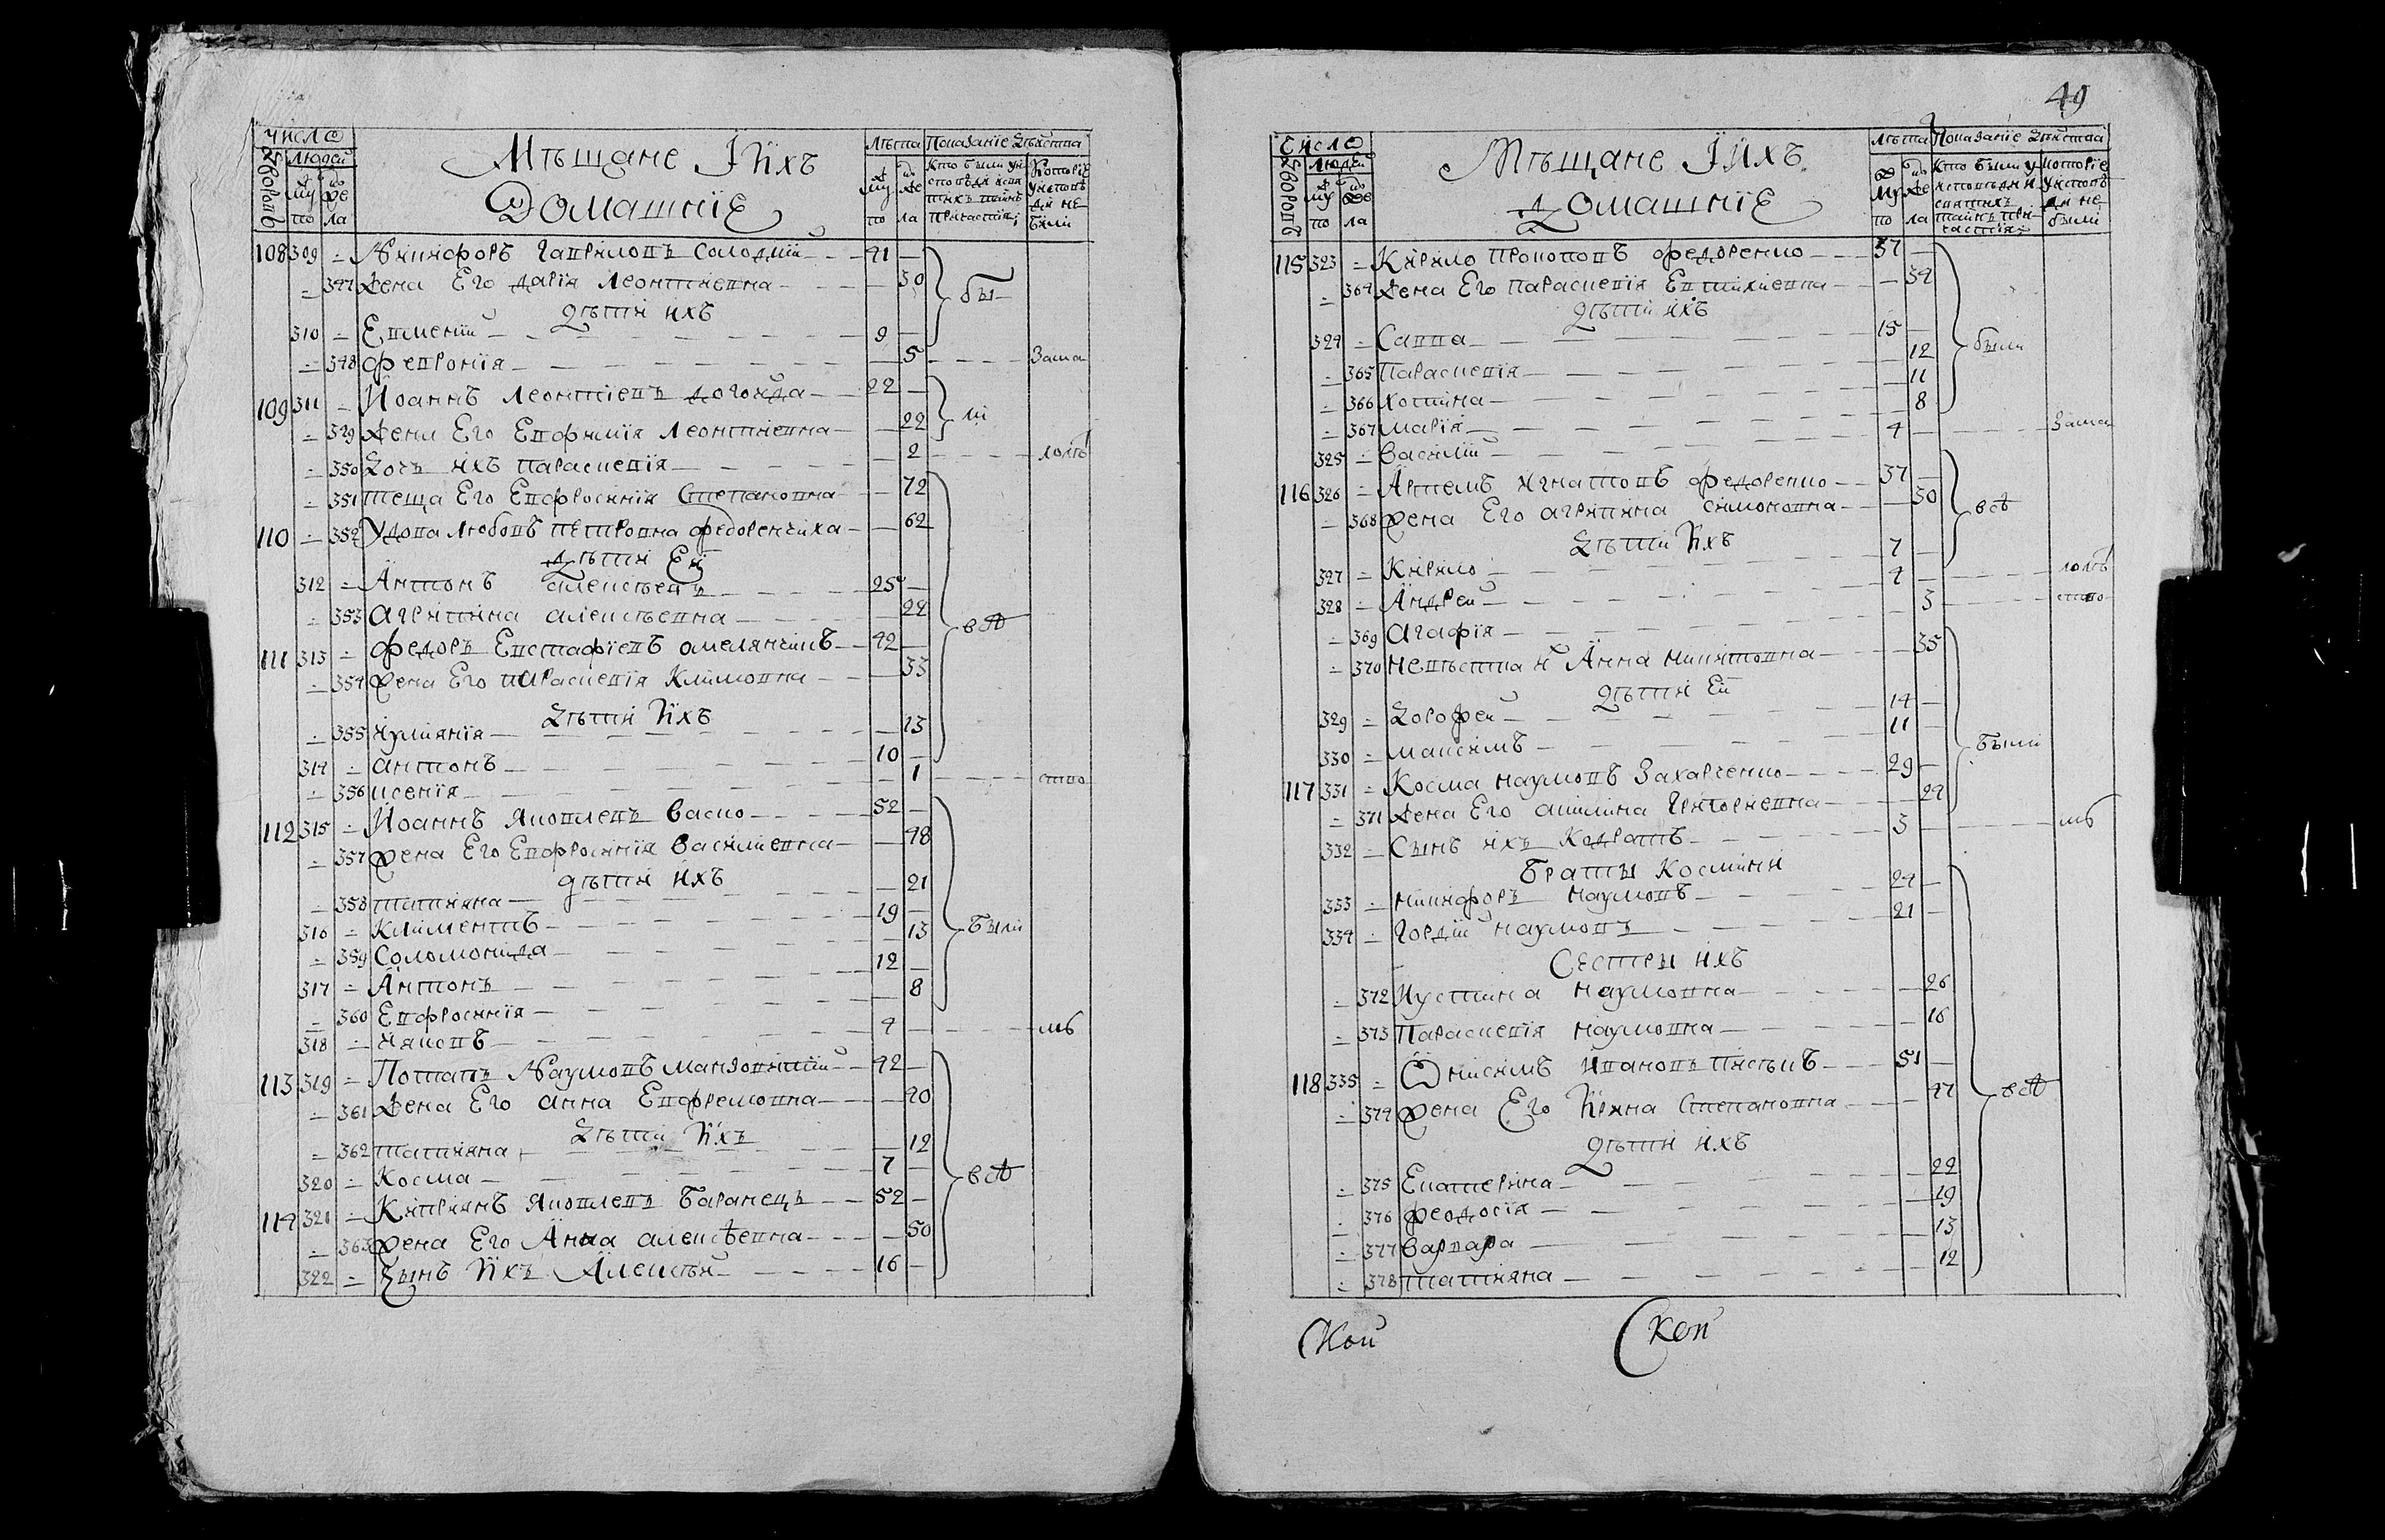 Число Мѣщане Їихъ Лѣта Показанїе Дѣйства
Дворовъ Людей Домашнїе
мужеско по женска ла
Кто были у исповѣди и святыхъ таинъ причастїя
Которїе у исповѣди не были
108 309 Никифоръ Гавриловъ Солодкїй 41
347 жена Его дарїя Леонтиевна 30 бы
дѣти ихъ
310 Евменїй 9
348 февронїя 5 Зама
109 311 Иоаннъ Леонтїевъ догонда 22
349 жена Его Евфимїя Леонтиевна 22 ли
350 дочь ихъ параскевїя 2 лолѣ
351 теща Его Евфросинїя Степановна 72
110 352 удова любовъ петровна федоренчиха 62
дѣти Ей
312 Антонъ алексѣевъ 25
353 агрипина алексѣевна 22
111 313 федоръ Евстафїевъ омелянчикъ 42 всѣ
354 жена Его параскевїя Климовна 33
дѣти Ихъ
355 иулиянїя 13
314 антонъ 10
356 ксенїя 1 ство
112 315 Иоаннъ яковлевъ васко 52
357 жена Его Евфросинїя василиевна 48
дѣти ихъ
358 татияна 21
316 Климентъ 19
359 Соломонида 13 были
317 Антонъ 12
360 Евфросинїя 8
318 ияковъ 4 мъ
113 319 Потапъ Наумовъ Мандовитїй 42
361 жена Его анна Евфремовна 40
дѣти Ихъ
362 татияна 12
320 Косма 7 всѣ
114 321 Киприянъ яковлевъ баранець 52
363 жена Его Анна алексѣевна 50
322 Сынъ Ихъ Алексѣй 16
49
Число Мѣщане Їихъ Лѣта Показанїе Дѣйства
Дворовъ Людей Домашнїе
Кто были у исповѣди и святыхъ таинъ причастїя
которїе у исповѣди не были
115 323 Кирило прокоповъ федоренко 37
364 жена Его параскевїя Евтихиевна 34
дѣти ихъ
324 Савва 15 были
365 параскевїя 12
366 хотина 11
367 марїя 8
325 василїй 4 Зама
116 326 Артемъ игнатовъ федоренко 37
368 жена Его агрипина симоновна 30 всѣ
дѣти Ихъ
327 Кирило 7
328 Андрей 4 лолѣ
369 агафїя 3 ство
370 невѣстка и Анна никитовна 35
дѣти Ей
329 дорофей 14
330 максимъ 11 были
117 331 Косма наумовъ Захарченко 29
371 жена Его акилина григориевна 24
332 Сынъ ихъ Кодратъ 3 мъ
браты Космини
333 никифоръ наумовъ 24
334 гордїй наумовъ 21
Сестры ихъ
372 Иустина наумовна 26
373 параскевїя наумовна 16
118 335 Онисимъ Ивановъ пясѣкъ 51
374 жена Его Ирина Степановна 47 всѣ
дѣти ихъ
375 Екатерина 22
376 феодосїя 19
377 варвара 13
378 татияна 12
Ской Скоп